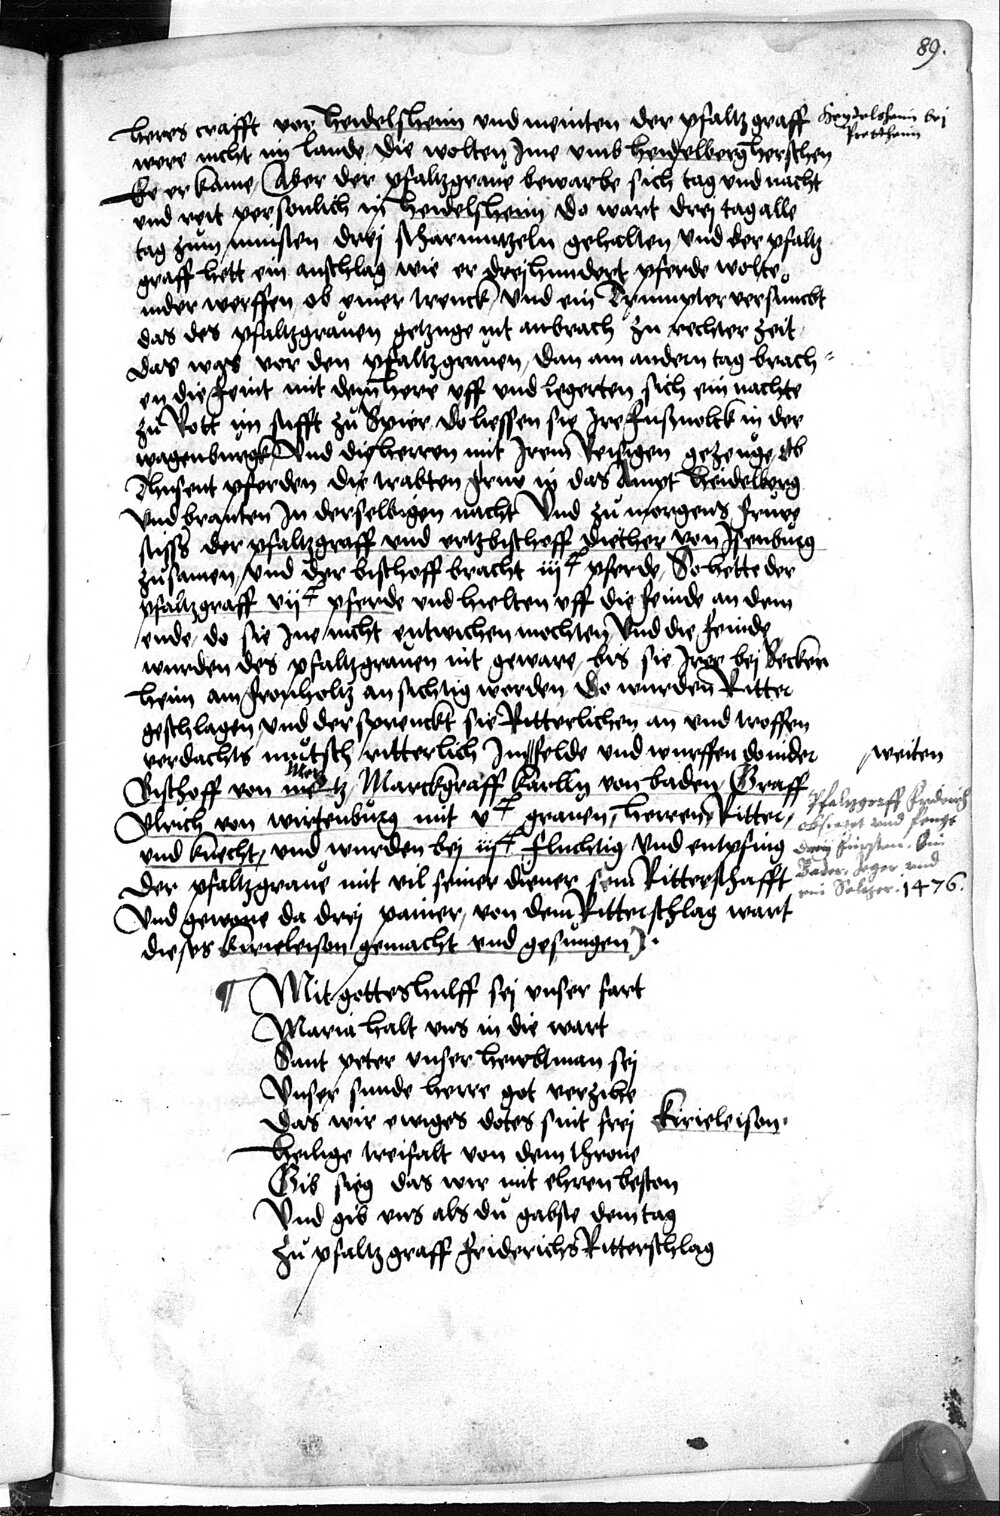 89.
heres crafft vor Heidelsheim und meinten der pfaltzgraff
were nicht im lande, die wolten Ime umb Heidelberg herschen
Ee er kame, Aber der pfaltzgrave bewarbe sich tag und nacht
und reit personlich in Heidelsheim do wart drei tag alle
tag zum minsten drei scharmutzeln gehalten Und der pfaltz
graff hett ein anschlag wie er dreihundert pferde wolte
nider werffen, ob einer trenck, Und ein Trumpter versumbt
das des pfaltzgraven getzuge nit anbrach zu rechter zeit
das was vor den pfaltzgraven, dan am andern tag brach-
en die feint mit dem here uff und legerten sich ein nachte
zu Rott im stifft zu Speier, do liessen sie Ire fusznolck in der
wagenburgk, Und die herren mit Irem Reisigen gezeuge, ob
Thusent pferden die trabten frue in das Ampt Heidelberg
Und branten In derselbigen nacht Und zu morgens fruwe
stiess der pfaltzgraff und ertzbischoff Diether von Isenburg
zusamen, Und der bischoff bracht iijc pferde, So hette der
pfaltzgraff vijc pferde und hielten uff die feinde an dem
ende, do sie Ime nicht entwichen mochten Und die feinde
wurden des pfaltzgraven nit geware, bis sie Irre bei Secken
heim am Fronholtz ansichtig worden, Do wurden Ritter
geschlagen, Und der sprenckt sie Ritterlichen an und troffen
verdachts mutsch ritterlich Im felde und wurffen do nider
Bischoff von metz, Marckgraff Karlln von Baden, Graff
Ulrich von Wirtenburg mit vc graven, herren, Ritter,
und knecht, und wurden bei iijc fluchtig, Und entpfing
der pfaltzgrave mit vil seiner diener sein Ritterschafft
Und gewone da drei panier, von dem Ritterschlag wart
dieses kirieleison gemacht und gesungen).
Heydelsheim bei
Prettheim
weiten
Metz
Pfaltzgraff Friderich
obsieget und fengt
drey Fürsten. Ein
Bader, Jeger und
ein Saltzer. 1476.
¶ Mit gottes hulff sei unser fart
Maria halt uns in die wart
Sant peter unser heubtman sei
Unser sunde herre got verzihe
Das wir ewiges dotes sint frei Kirieleison.
Heilige treifalt von dem throne
Gib sieg das wir mit ehren besten
Und gib uns als du gabste dem tag
Zu pfaltzgraff Friderichs Ritterschlag